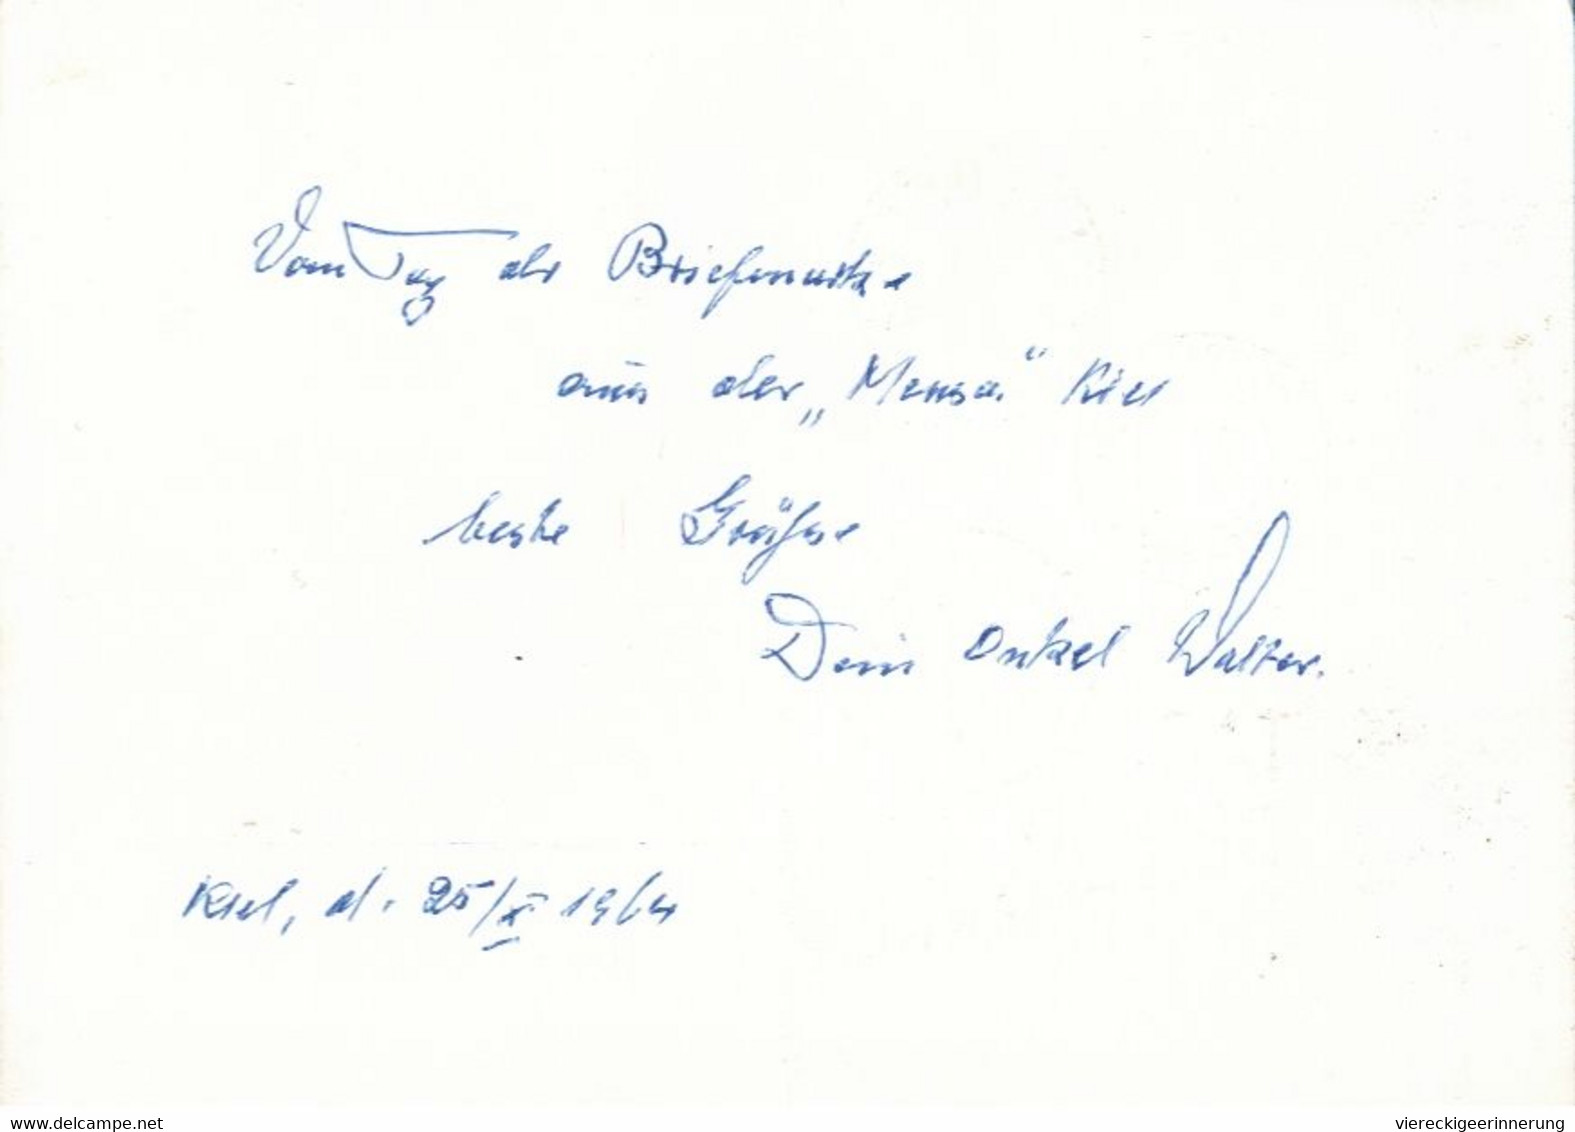 Vom Tag der Briefmarke
aus der „Mensa“ Kiel
beste Grüße
Dein Onkel Walter.
Kiel, d. 25/X 1964
www.delcampe.net
viereckigeerinnerung